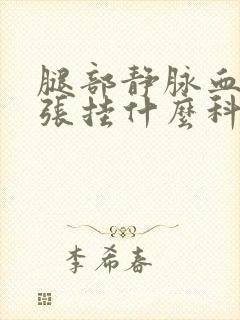 腿部静脉血
張挂什麼科
李希春